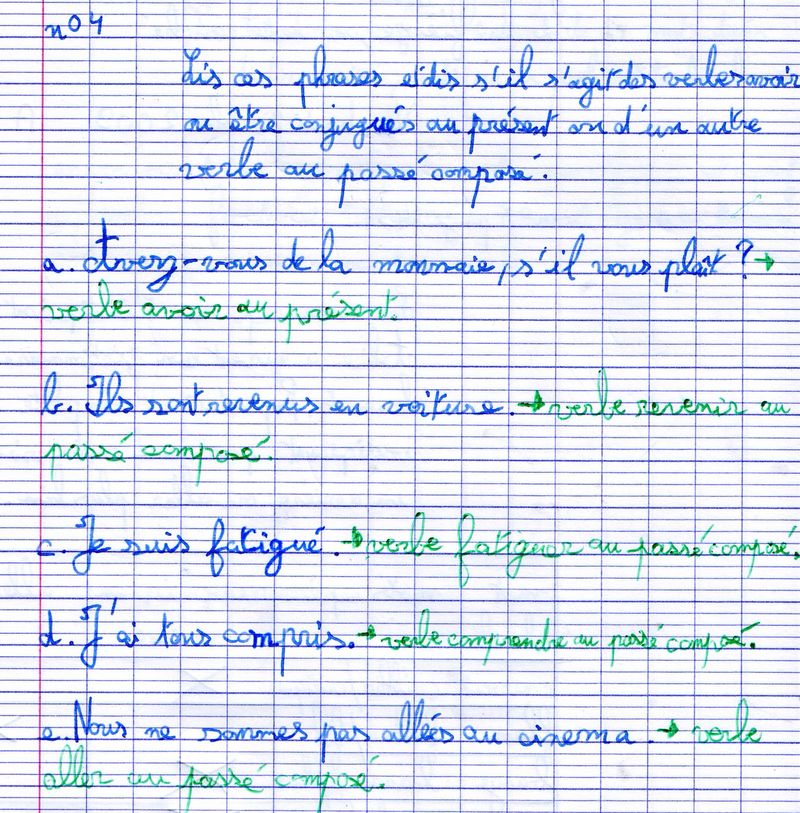 n°4
Lis ces phrases et dis s'il s'agit des verbes avoir
ou être conjugués au présent ou d'un autre
verbe au passé composé.
a. Avez-vous de la monnaie, s'il vous plaît ? →
verbe avoir au présent.
b. Ils sont revenus en voiture. → verbe revenir au
passé composé.
c. Je suis fatigué. → verbe fatiguer au passé composé.
d. J'ai tous compris. → verbe comprendre au passé composé.
e. Nous ne sommes pas allés au cinema. → verbe
aller au passé composé.